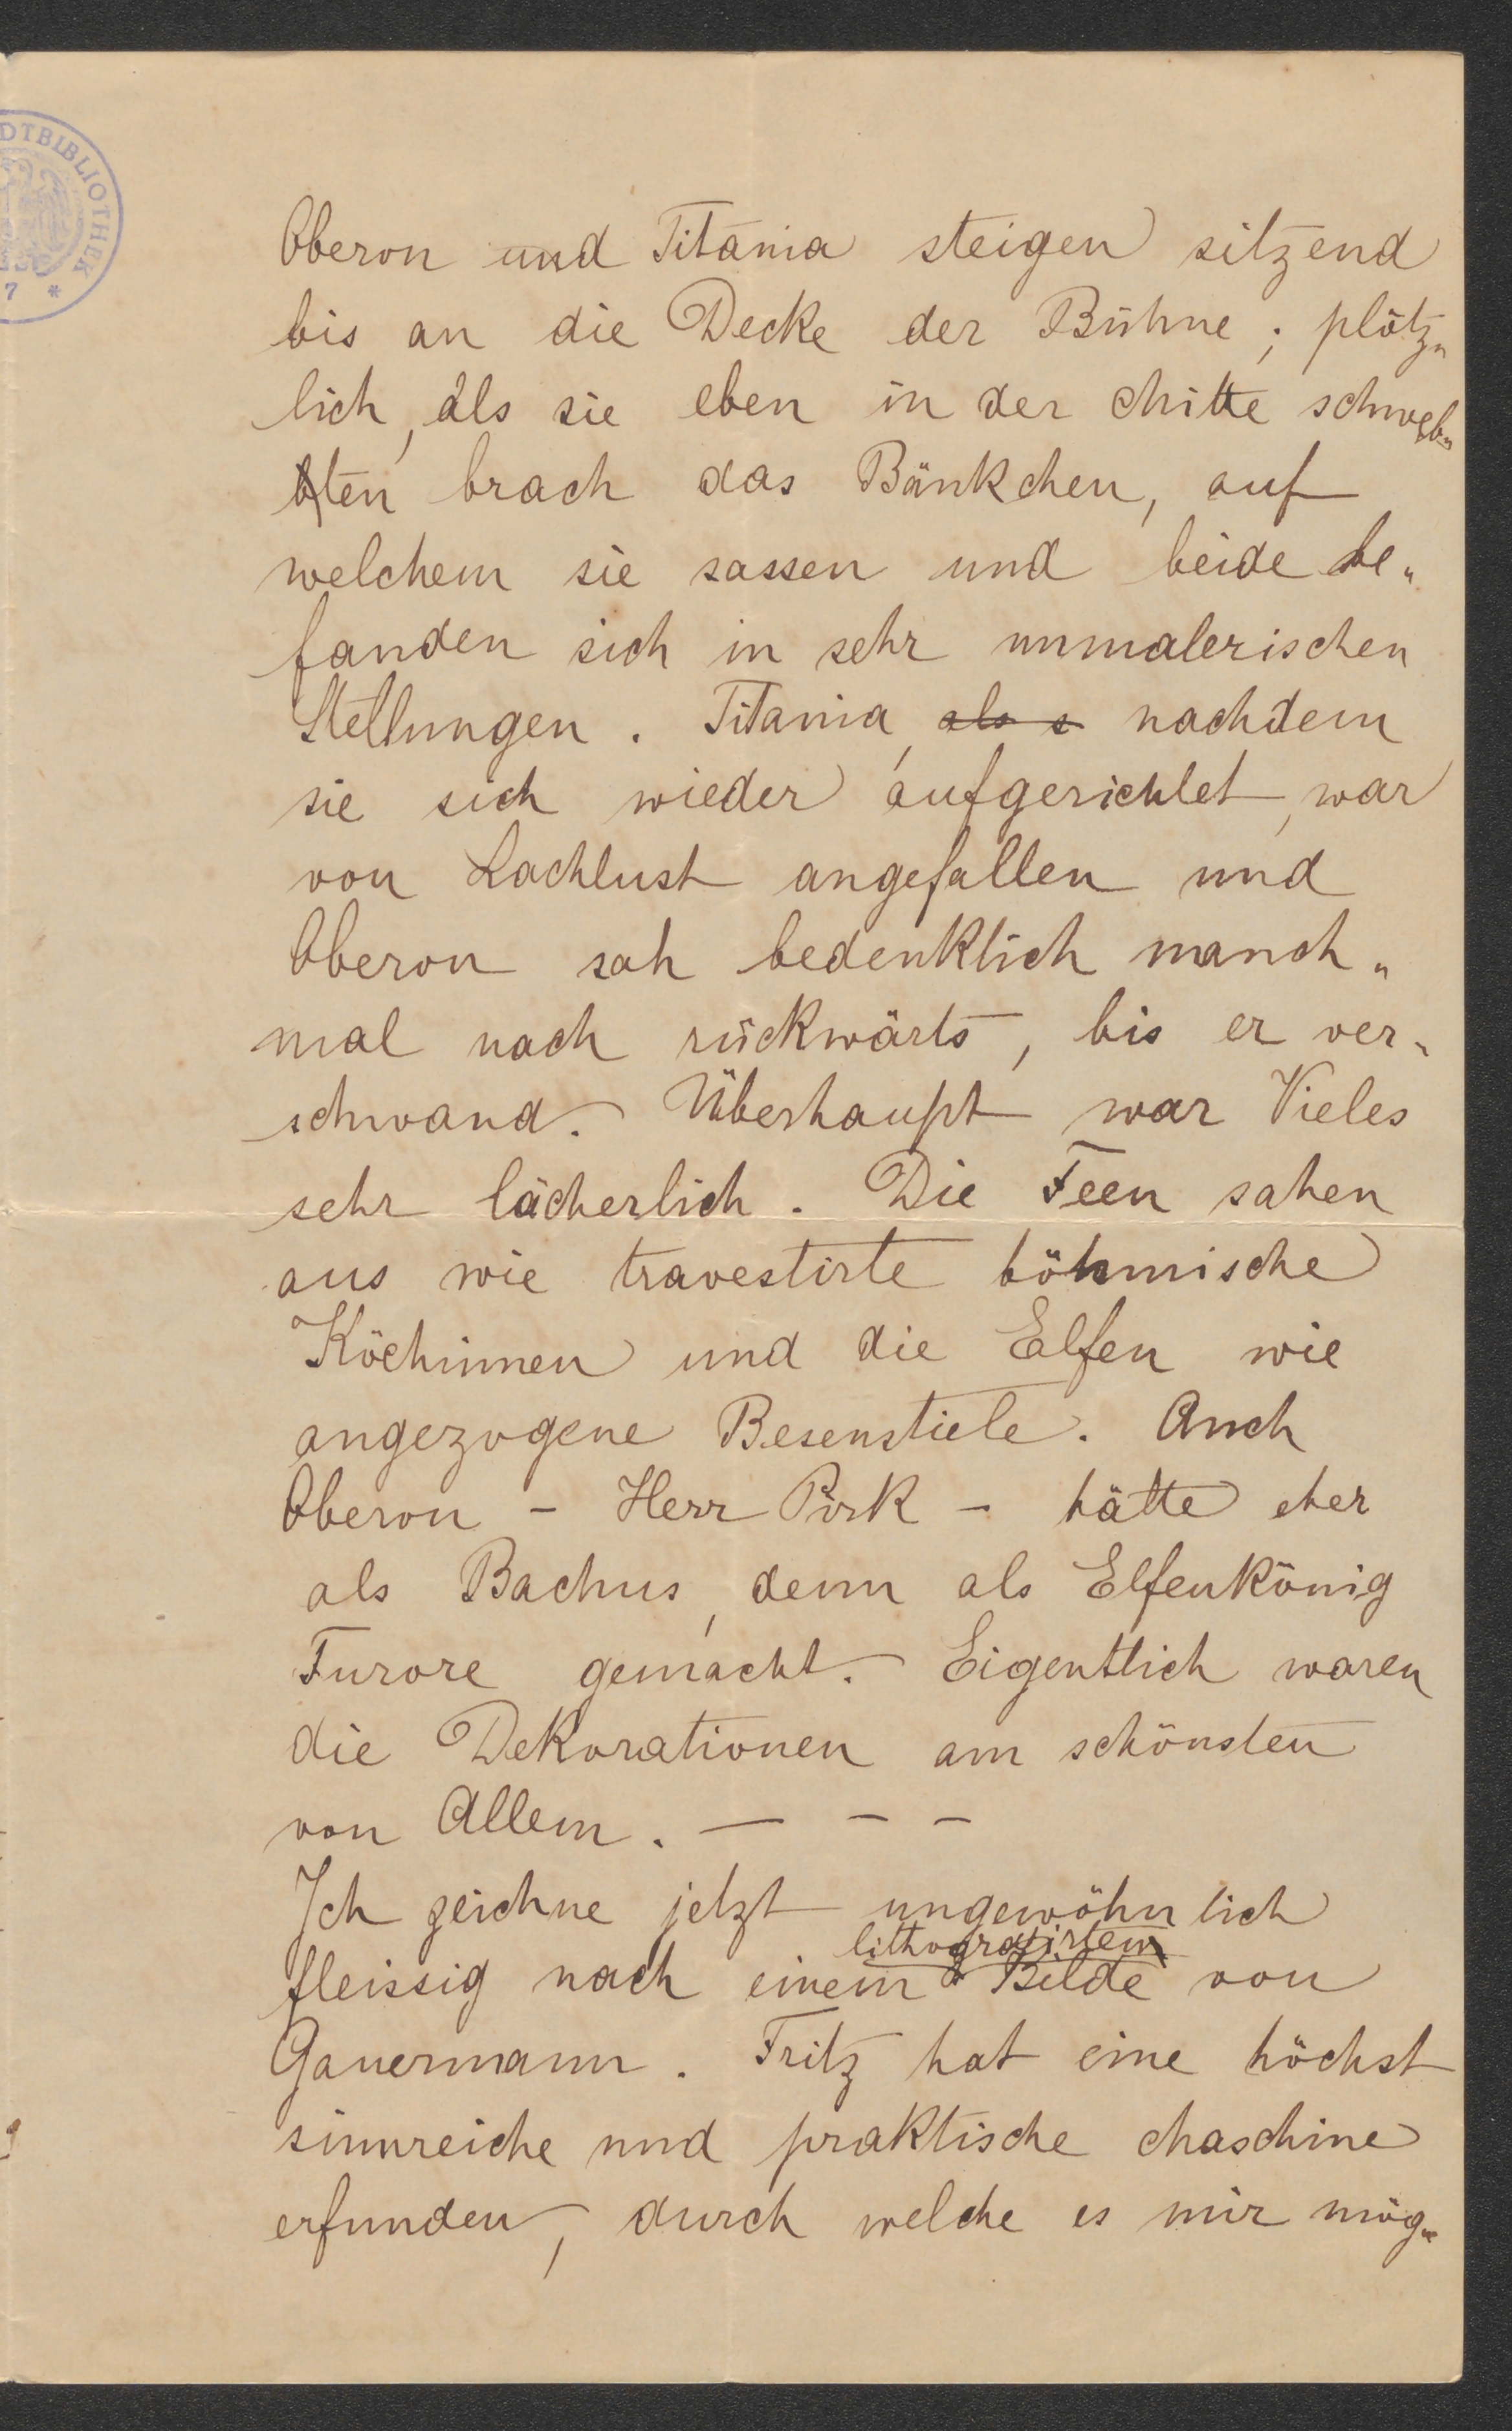 DTBIBLIOTHEK
7 *
Oberon und Titania steigen sitzend
bis an die Decke der Bühne; plötz„
lich, als sie eben in der Mitte schweb„
ten brach das Bänkchen, auf
welchem sie sassen und beide be„
fanden sich in sehr unmalerischen
Stellungen. Titania, als s nachdem
sie sich wieder aufgerichtet, war
von Lachlust angefallen und
Oberon sah bedenklich manch„
mal nach rückwärts, bis er ver„
schwand. Überhaupt war Vieles
sehr lächerlich. Die Feen sahen
aus wie travestirte böhmische
Köchinnen und die Elfen wie
angezogene Besenstiele. Auch
Oberon – Herr Pirk – hätte eher
als Bachus, denn als Elfenkönig
Furore gemacht. Eigentlich waren
die Dekorationen am schönsten
von Allem. — – –
Ich zeichne jetzt ungewöhnlich
lithografirtem
fleissig nach einem Bilde von
Gauermann. Fritz hat eine höchst
sinnreiche und praktische Maschine
erfunden, durch welche es mir mög„